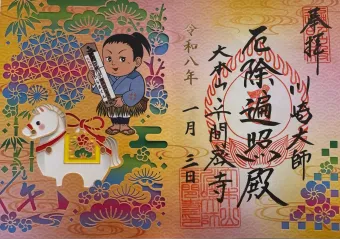 奉拝
川崎大師
厄除遍照殿
大本山平間寺
令和八年
一月三日